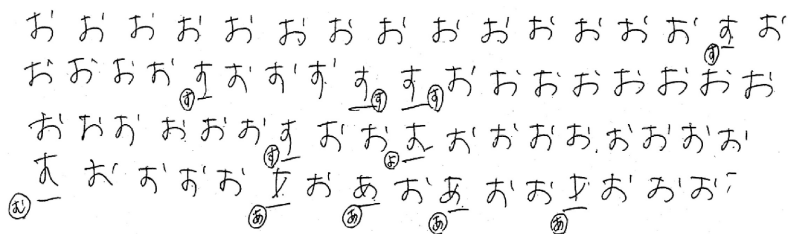 お お お お お お お お お お お お お お す お
す
お お お お す お お お す す お お お お お お お お
す す す
お お お お お お す お お お お お お お お お お お
す よ
む お お お お あ お あ お あ お お あ お お お
む あ あ あ あ